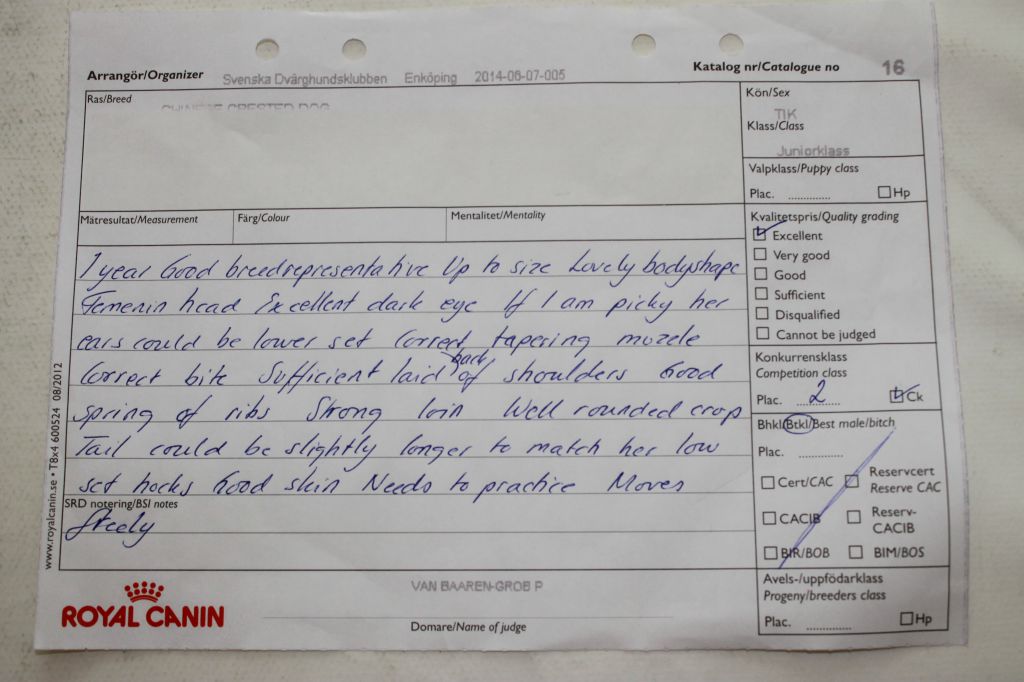 Arrangör/Organizer Svenska Dvärghundsklubben Enköping 2014-06-07-005 Katalog nr/Catalogue no 16
Ras/Breed CHINESE CRESTED DOG
Kön/Sex
TIK
Klass/Class
Juniorklass
Valpklass/Puppy class
Plac. .............. Hp
Mätresultat/Measurement Färg/Colour Mentalitet/Mentality
Kvalitetspris/Quality grading
Excellent
Very good
Good
Sufficient
Disqualified
Cannot be judged
1 year Good breedrepresentative Up to size Lovely bodyshape
Femenin head Excellent dark eye If I am picky her
ears could be lower set Correct tapering muzele
Correct bite Sufficient laid back of shoulders Good
spring of ribs Strong loin Well rounded crop
Tail could be slightly longer to match her low
set hocks Good skin Needs to practice Moves
SRD notering/BSI notes
freely
Konkurrensklass
Competition class
Plac. 2 Ck
Bhkl/Btkl/Best male/bitch
Plac. ..............
Cert/CAC
Reservcert
Reserve CAC
CACIB
Reserv-
CACIB
BIR/BOB BIM/BOS
Avels-/uppfödarklass
Progeny/breeders class
Plac. .............. Hp
www.royalcanin.se • T8x4 600524 08/2012
ROYAL CANIN
VAN BAAREN-GROB P
Domare/Name of judge